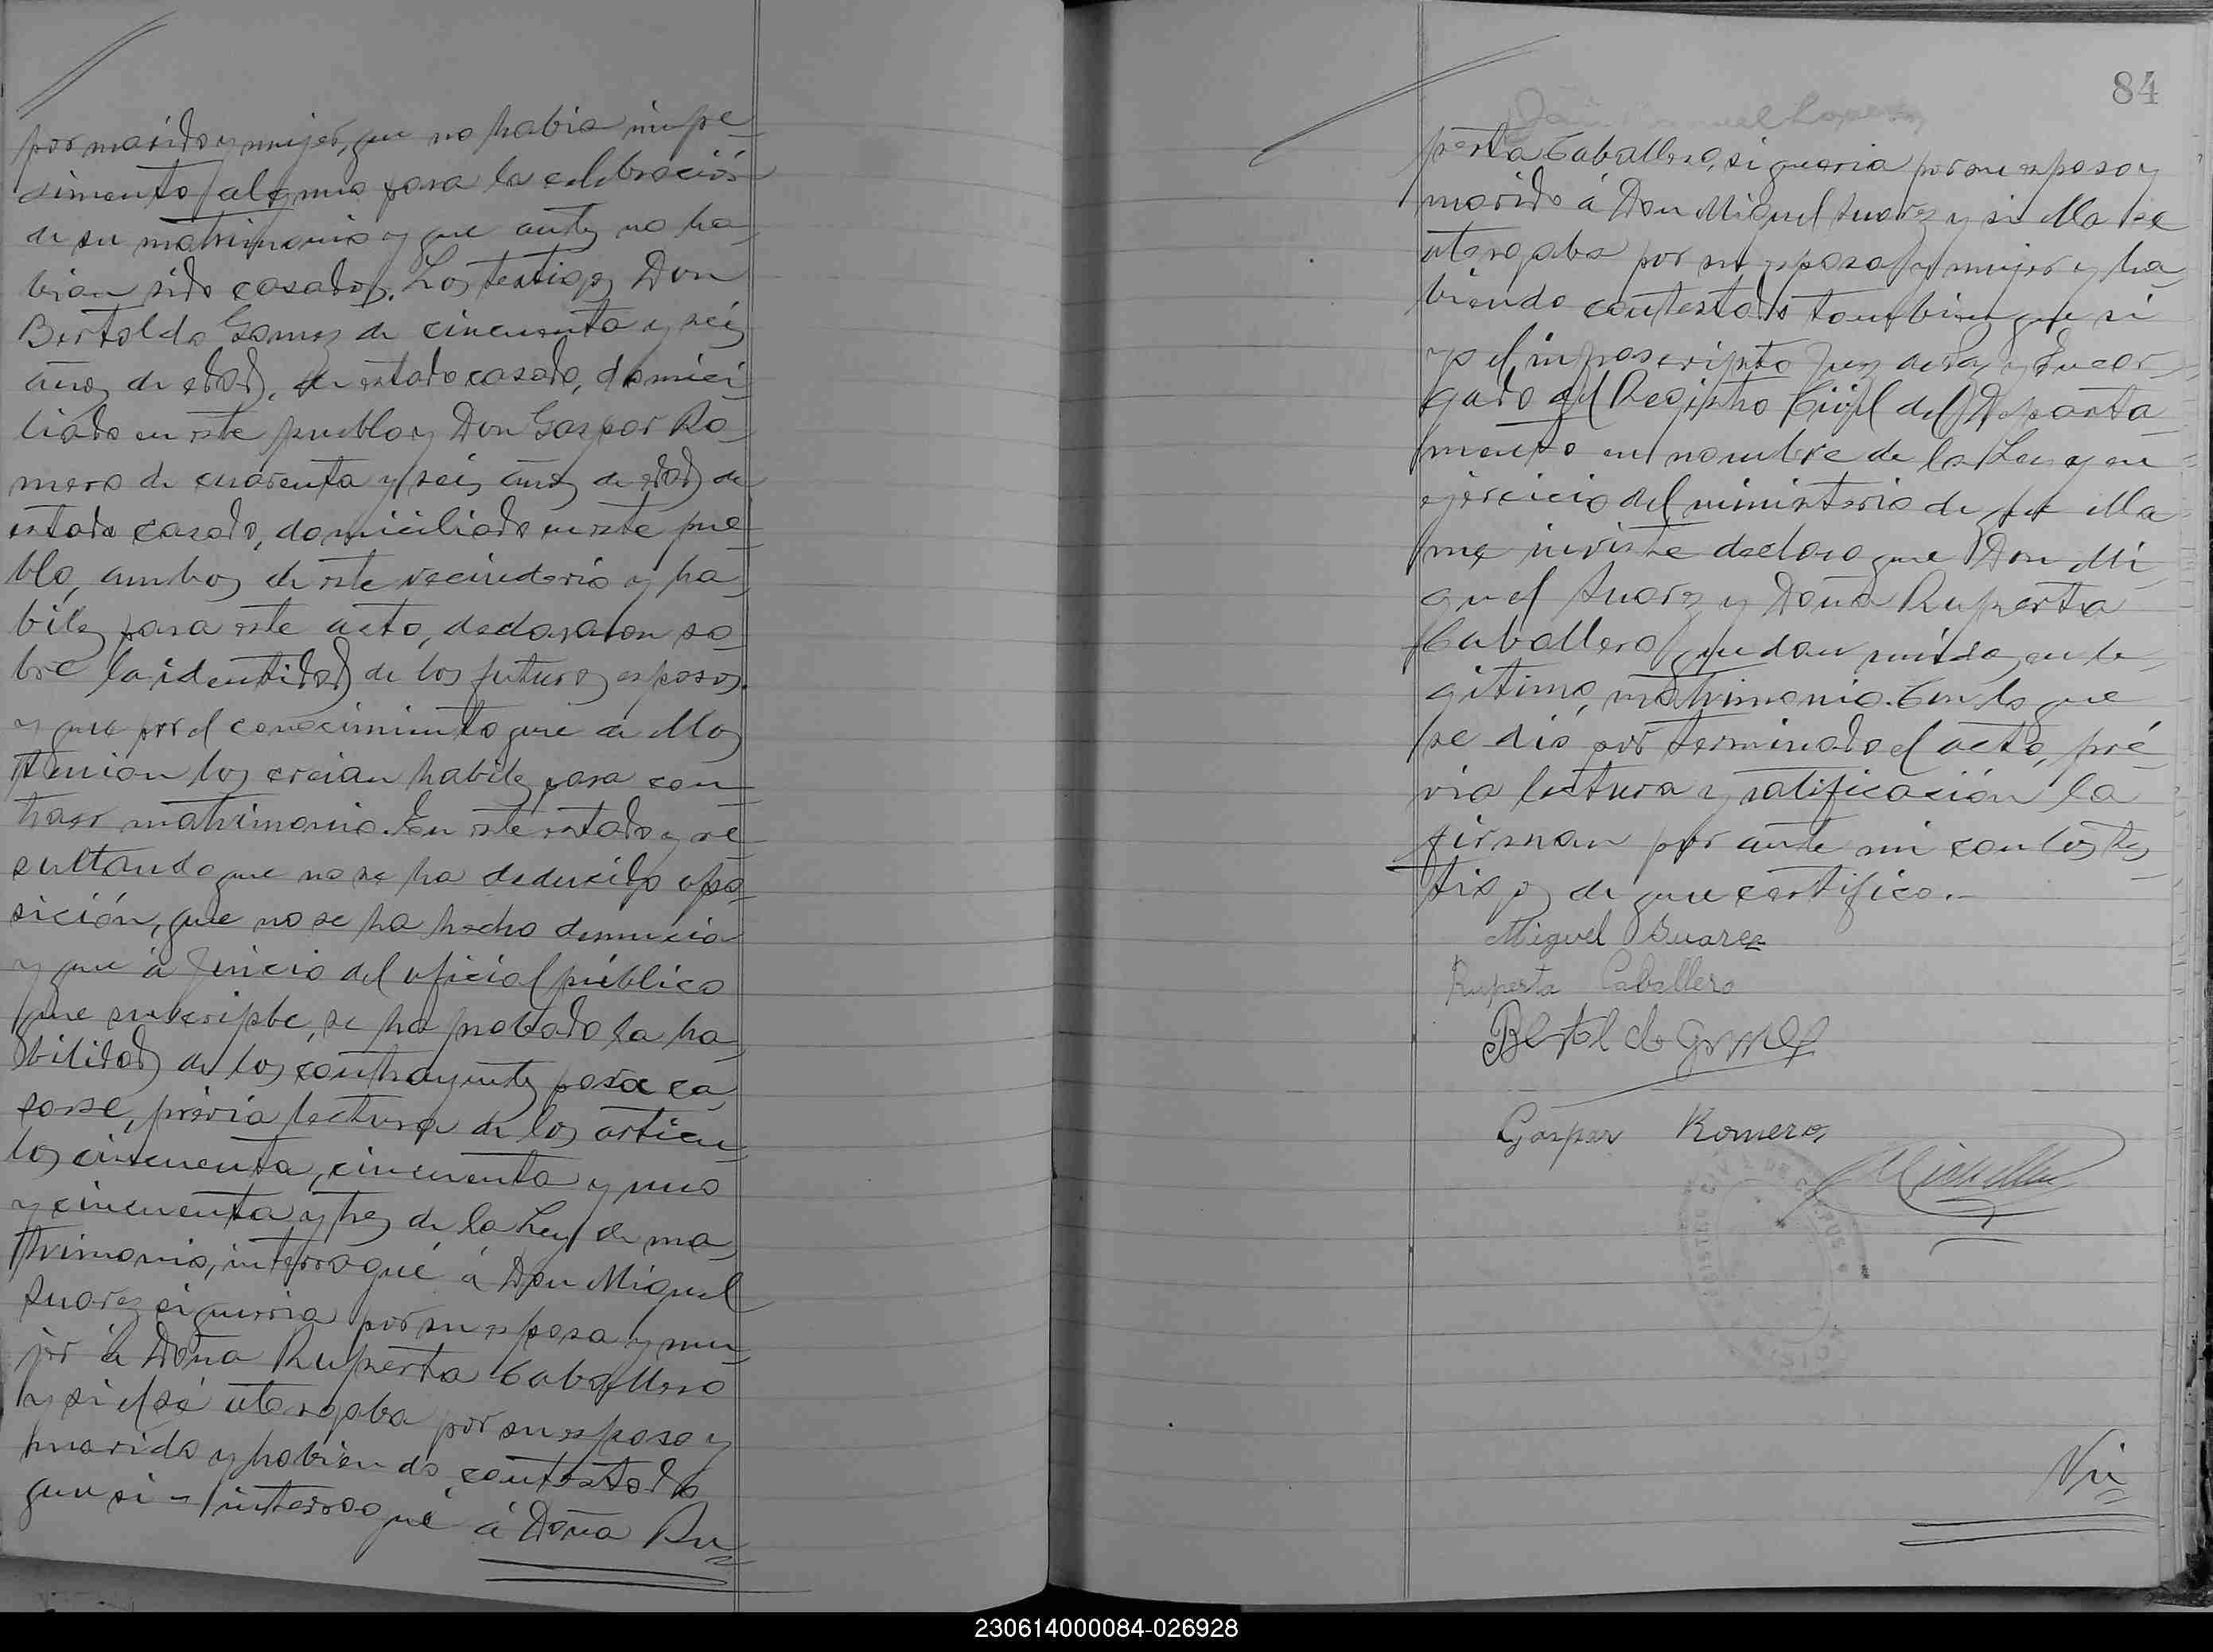 por marido y mujer, que no habia impe-
dimento alguno para la celebración
de su matrimonio y que antes no ha-
bian sido casados. Los testigos Don
Bertoldo Gomez de cincuenta y seis
años de edad, de estado casado, domici-
liado en este pueblo y Don Gaspar Ro-
mero de cuarenta y seis años de edad de
estado casado, domiciliado en este pue-
blo, ambos de este vecindario y ha-
biles para este acto, declararon so-
bre la identidad de los futuros esposos.
y que por el conocimiento que de ellos
tenian los creian habiles para con-
traer matrimonio. En este estado y re-
sultando que no se ha deducido opo-
sición, que no se ha hecho denuncia
y que á juicio del oficial público
que subscripbe, se ha probado la ha-
bilidad de los contrayentes para ca-
sarse, prévia lectura de los articu-
los cincuenta, cincuenta y uno
y cincuenta y tres de la Ley de ma-
trimonio, interrogué á Don Miguel
Suarez si queria por su esposa y mu-
jer á Doña Ruperta Caballero
y si el se otorgaba por su esposo y
marido y habiendo contestado
que si - interrogué á Doña Ru-
84
perta Caballero, si queria por su esposo y
marido á Don Miguel Suarez y si ella se
otorgaba por su esposa y mujer y ha-
biendo contestado tambien que si
yo el infrascripto Juez de Paz y Encar-
gado del Registro Civil del Departa-
mento en nombre de la Ley y en
ejercicio del ministerio de que ella
me inviste declaro que Don Mi-
guel Suarez y Doña Ruperta
Caballero quedan unidos en le-
gitimo matrimonio. Con lo que
se dió por terminado el acto, pré-
via lectura y ratificación la
firman por ante mi con los tes-
tigos de que certifico.-
Miguel Suarez
Ruperta Caballero
Bertoldo Gomez
Gaspar Romero
230614000084-026928